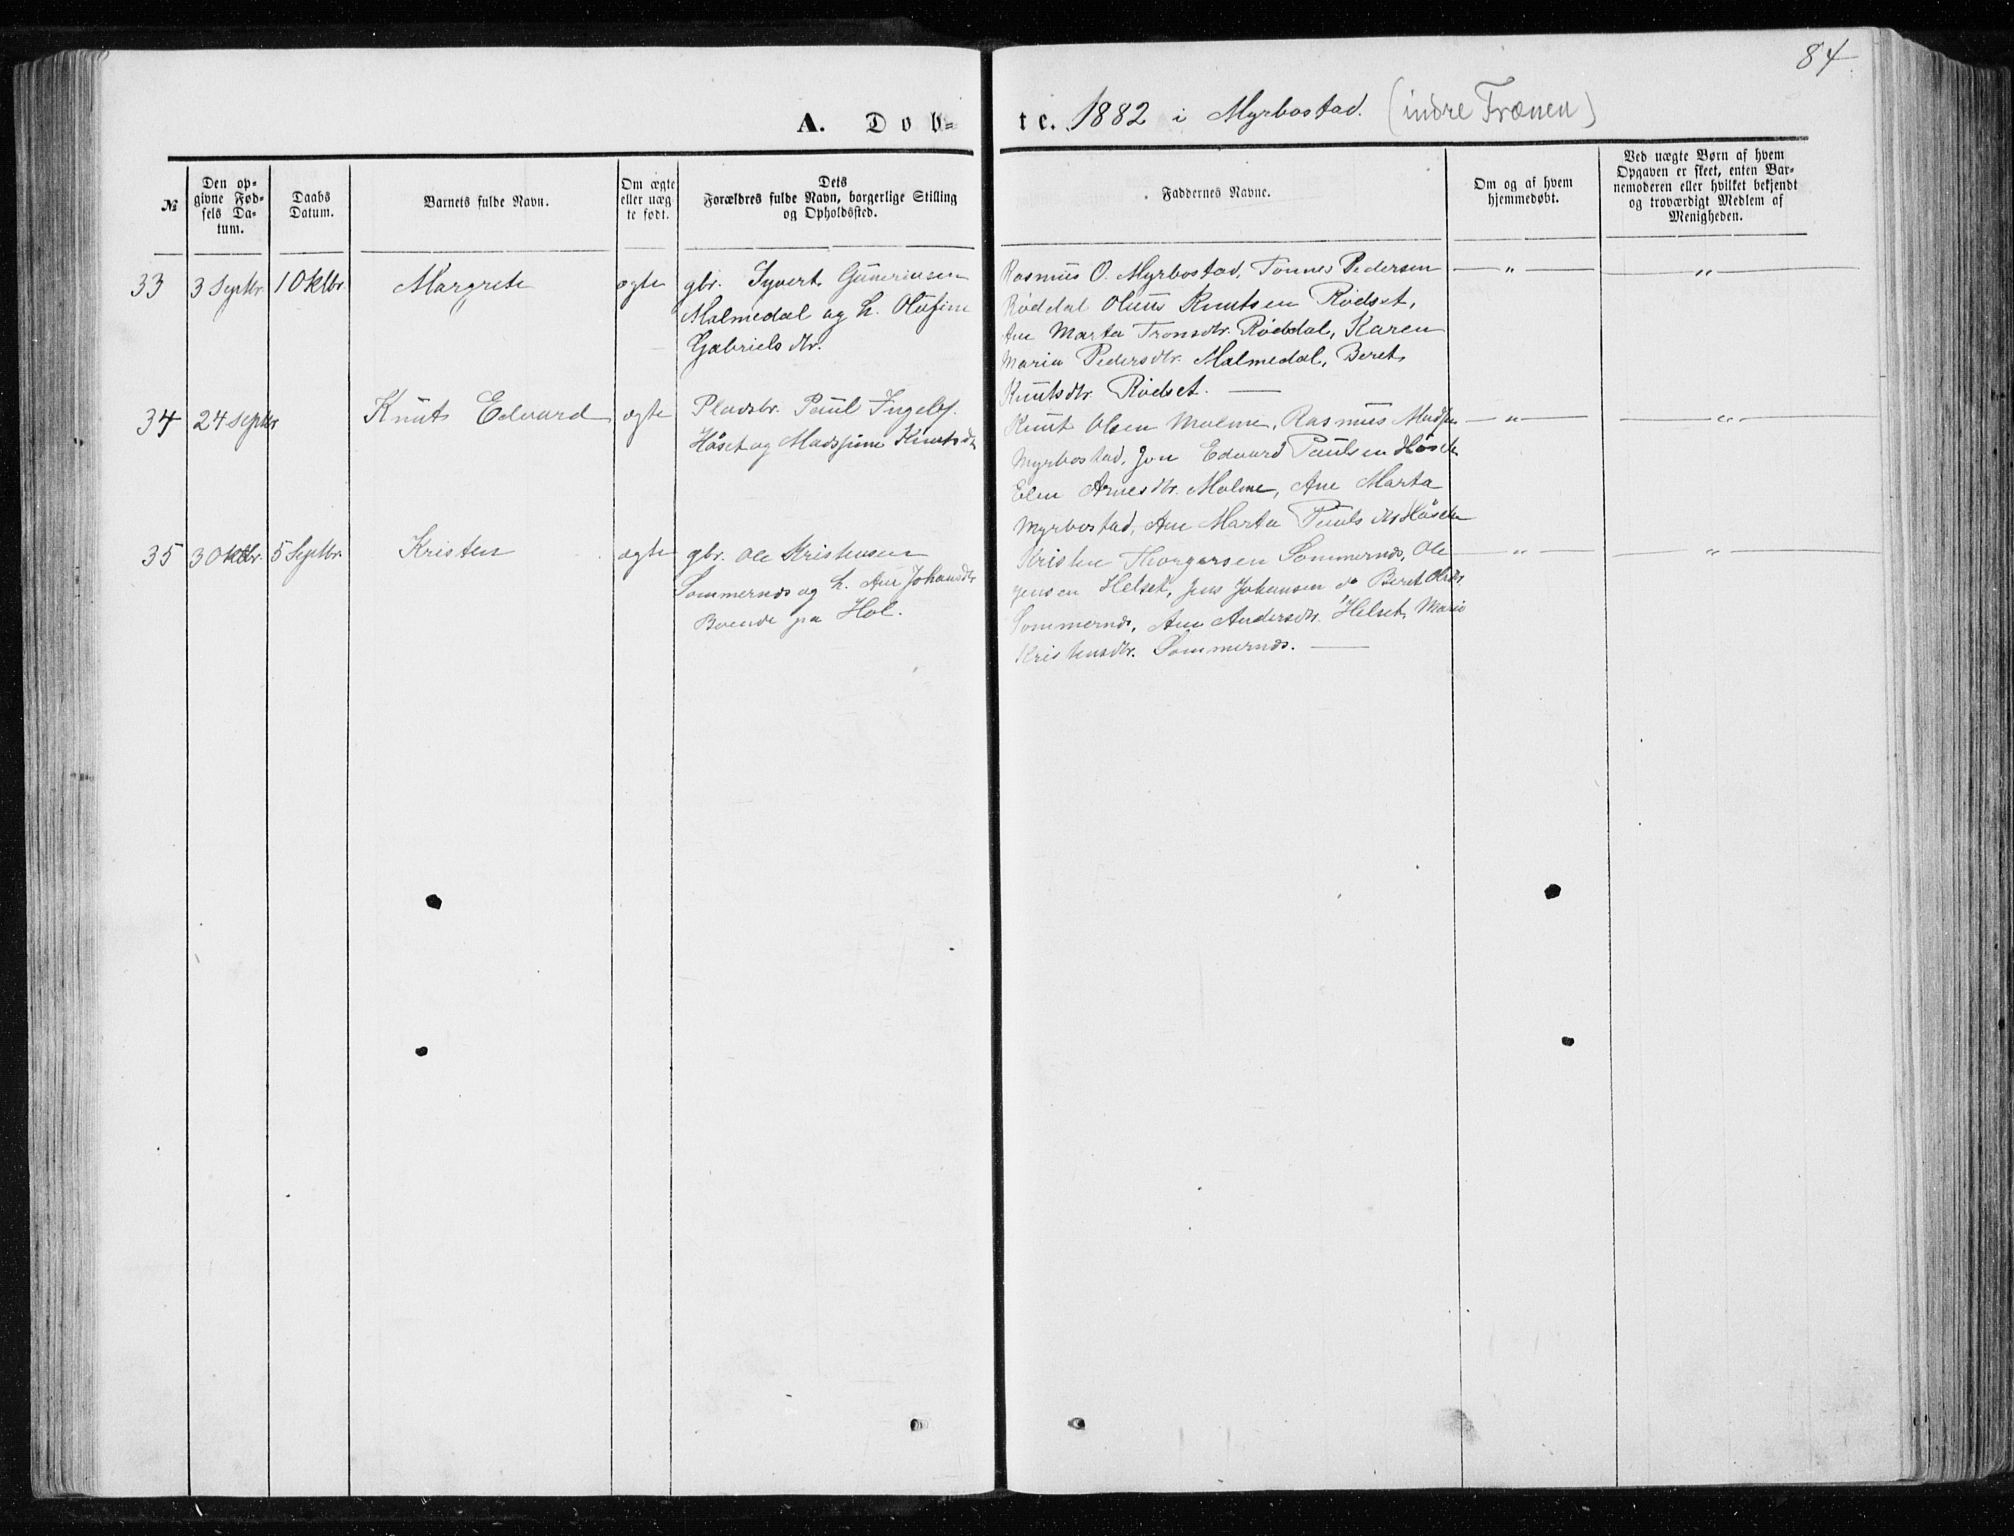 84
A. Døb-
te. 1882 i Myrbostad. (indre Frænen)
№
Den op-
givne Fød-
sels Da-
tum.
Daabs
Datum.
Barnets fulde Navn.
Om ægte
eller uæg
te født.
Dets
Forældres fulde Navn, borgerlige Stilling
og Opholdssted.
Faddernes Navne.
Om og af hvem
hjemmedøbt.
Ved uægte Børn af hvem
Opgaven er skeet, enten Bar-
nemoderen eller hvilket bekjendt
og troværdigt Medlem af
Menigheden.
33
3 Septbr.
1 Oktbr.
Margrete
ægte
gbr. Syvert Guneriusen
Malmedal og h. Olufine
Gabriels dtr.
Rasmus O. Myrbostad, Tønnes Pedersen
Røddal Knutsen Rødset,
Ane Marta Tronsdtr. Røddal, Karen
Maria Pedersdtr. Malmedal, Beret
Knutsdtr Rødset. —
— „ —
— „ —
34
24 Septbr
Knut Edvard
ægte
Pladsbr. Paul Ingebr.
Høset og Madsjine Knutsdt
Knut Olsen Malme, Rasmus Madsen
Myrbostad, Jon Edvard Paulsen Høset
Elen Arnesdtr. Malme, Ane Marta
Myrbostad, Ane Marta Pauls dtr Høset
— „ —
— „ —
35
3 Oktbr.
5 Septbr.
Kristen
ægte
gbr. Ole Kristensen
Sommernæs og h. Ane Johansdtr
Boende pa Hol.
Kristen Thorgersen Sommernæs, Ole
Jensen Helset, Jens Johansen do Beret Olsdtr
Sommernæs, Ane Andersdtr. Helset, Marie
Kristensdtr. Sommernæs. —
— „ —
— „ —